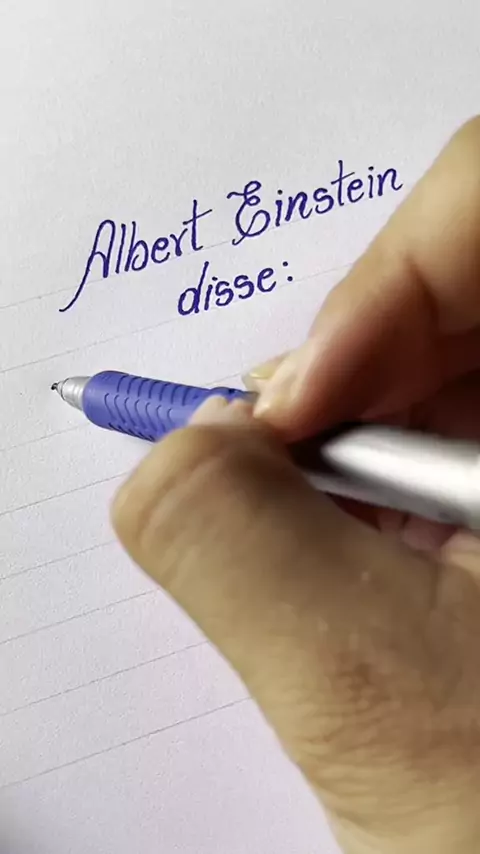 Albert Einstein
disse: